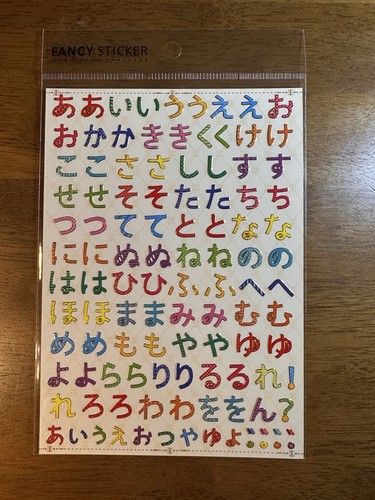 FANCY STICKER
ああいいううええお
おかかききくくけけ
ここささししすす
せせそそたたちち
つつててととなな
ににぬぬねねのの
ははひひふふへへ
ほほままみみむむ
めめももややゆゆ
よよららりりるるれ!
れろろわわををん?
あいうえおつやゆよ